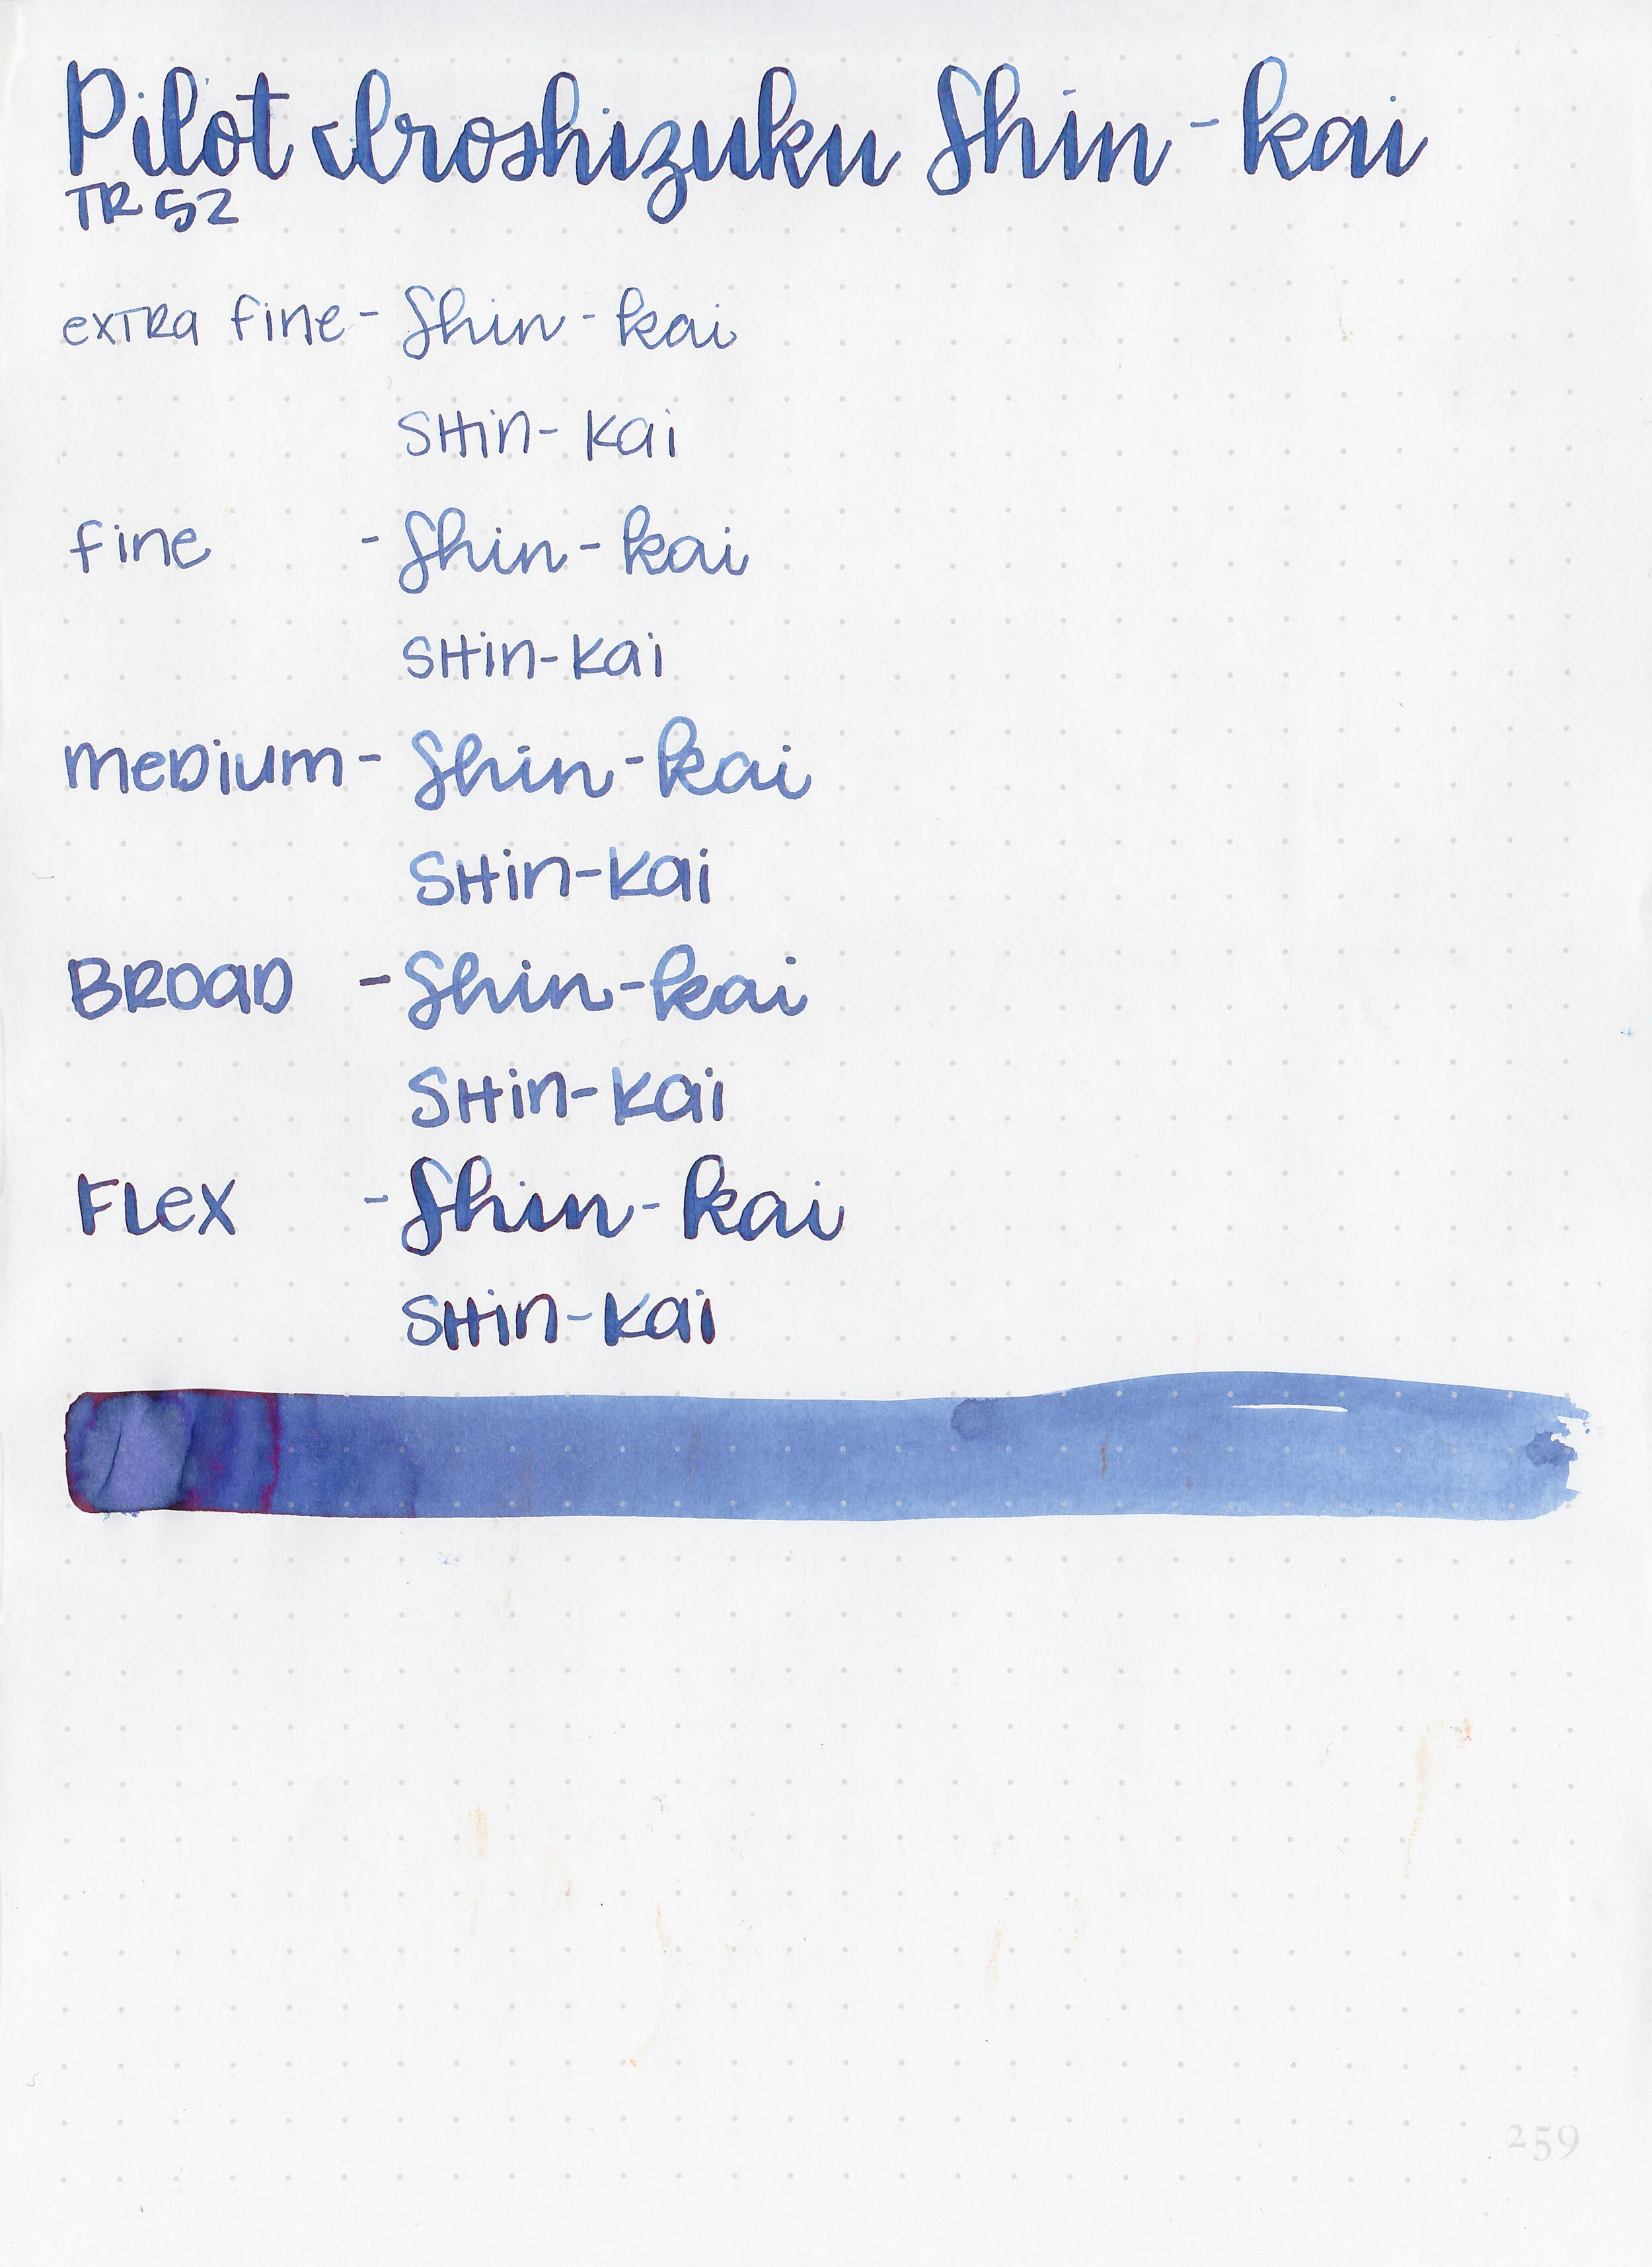 Pilot Iroshizuku Shin-kai
TR 52
extra fine - Shin-kai
Shin-kai
fine - Shin-kai
Shin-kai
Medium - Shin-kai
Shin-kai
Broad - Shin-kai
Shin-kai
Flex - Shin-kai
Shin-kai
259